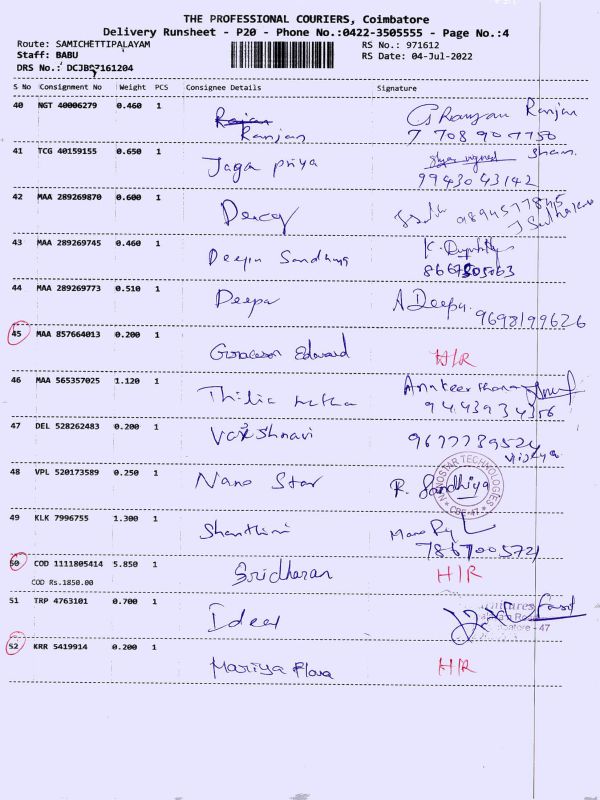 THE PROFESSIONAL COURIERS, Coimbatore
Delivery Runsheet - P20 - Phone No.:0422-3505555 - Page No.:4
Route: SAMICHETTIPALAYAM RS No.: 971612
Staff: BABU RS Date: 04-Jul-2022
DRS No.: DCJB07161204
S No Consignment No Weight PCS Consignee Details Signature
40 NGT 40006279 0.460 1
Ranjan Ranjan
7 708 907750
41 TCG 40159155 0.650 1
Jaga priya Sham
99430 43142
42 MAA 289269870 0.600 1
Dercy 9894577845
43 MAA 289269745 0.460 1
Deepu Sandhya K.
44 MAA 289269773 0.510 1
Deepa A Deepa.
9698199626
45 MAA 857664013 0.200 1
Edward H/R
46 MAA 565357025 1.120 1
47 DEL 528262483 0.200 1
Vaishnavi
48 VPL 520173589 0.250 1
Nano Star R. Sandhiya
NANOSTAR TECHNOLOGIES
CBE-47
49 KLK 7996755 1.300 1
Shanthini
7867005721
50 COD 1111805414 5.850 1
Sridharan H/R
COD Rs.1850.00
51 TRP 4763101 0.700 1
Ideal
52 KRR 5419914 0.200 1
Mariya Flora H/R